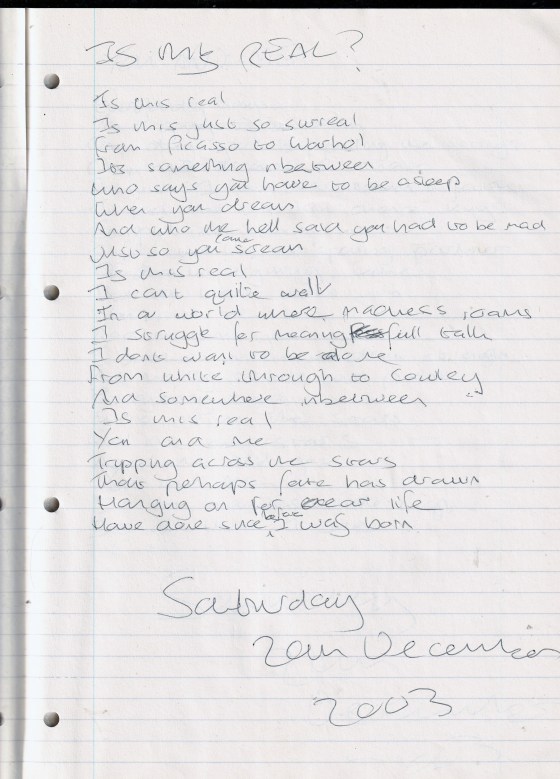 IS THIS REAL?
Is this real
Is this just so surreal
From Picasso to Warhol
Its something inbetween
Who says you have to be asleep
When you dream
And who the hell said you had to be mad
Just so you can scream
Is this real
I cant quite
In a world where madness roams
I struggle for meaningfull talk
I dont want to be alone
From white through to Cowley
And somewhere inbetween
Is this real
You and me
Tripping across the stars
Thats perhaps fate has drawn
Hanging on for dear life
Have done since before I was born
Saturday
20th December
2003